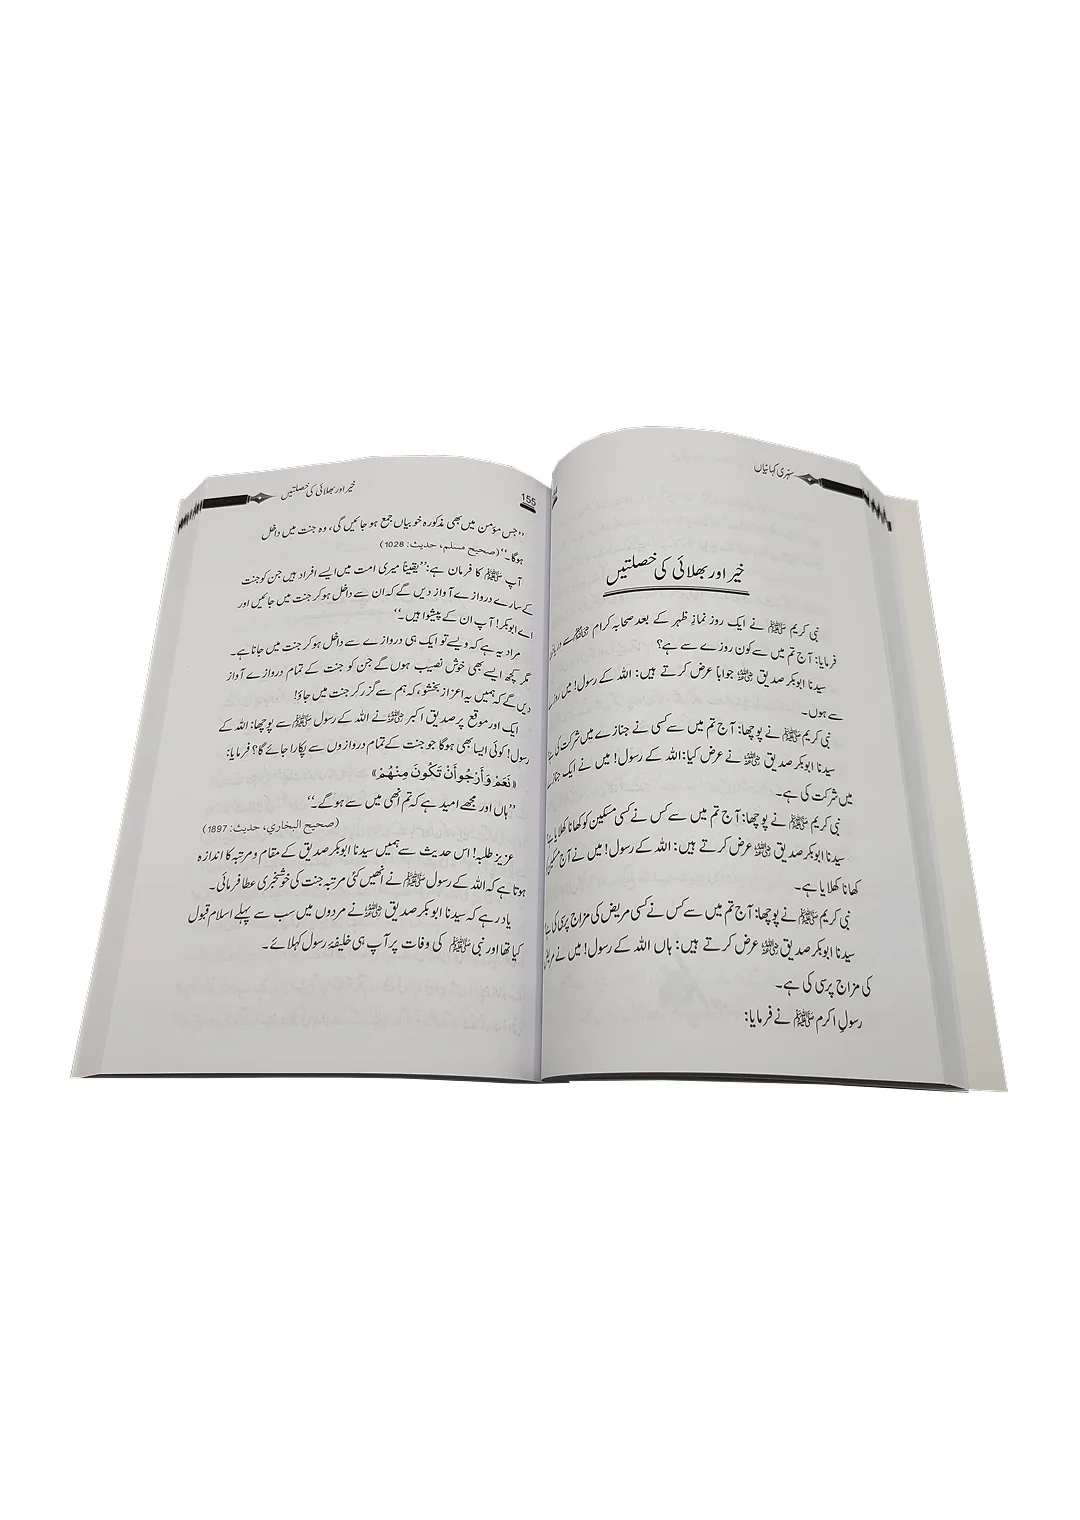 سنہری کہانیاں
خیر اور بھلائی کی خصلتیں
نبی کریم ﷺ نے ایک روز نمازِ ظہر کے بعد صحابہ کرام
فرمایا: آج تم میں سے کون روزے سے ہے؟
سیدنا ابوبکر صدیق رضی اللہ عنہ جواباً عرض کرتے ہیں: اللہ کے رسول! میں
سے ہوں۔
نبی کریم ﷺ نے پوچھا: آج تم میں سے کسی نے جنازے میں شرکت کی
سیدنا ابوبکر صدیق رضی اللہ عنہ نے عرض کیا: اللہ کے رسول! میں نے ایک
میں شرکت کی ہے۔
نبی کریم ﷺ نے پوچھا: آج تم میں سے کس نے کسی مسکین کو کھانا کھلایا
سیدنا ابوبکر صدیق رضی اللہ عنہ عرض کرتے ہیں: اللہ کے رسول! میں نے آج
کھانا کھلایا ہے۔
نبی کریم ﷺ نے پوچھا: آج تم میں سے کس نے کسی مریض کی مزاج پرسی کی
سیدنا ابوبکر صدیق رضی اللہ عنہ عرض کرتے ہیں: ہاں اللہ کے رسول! میں نے
کی مزاج پرسی کی ہے۔
رسولِ اکرم ﷺ نے فرمایا:
خیر اور بھلائی کی خصلتیں
155
’’جس مؤمن میں بھی مذکورہ خوبیاں جمع ہو جائیں گی، وہ جنت میں داخل
ہوگا۔‘‘ (صحیح مسلم، حدیث: 1028)
آپ ﷺ کا فرمان ہے: ’’یقیناً میری امت میں ایسے افراد ہیں جن کو جنت
کے سارے دروازے آواز دیں گے کہ ان سے داخل ہو کر جنت میں جائیں اور
اے ابوبکر! آپ ان کے پیشوا ہیں۔‘‘
مراد یہ ہے کہ ویسے تو ایک ہی دروازے سے داخل ہو کر جنت میں جانا ہے۔
مگر کچھ ایسے بھی خوش نصیب ہوں گے جن کو جنت کے تمام دروازے آواز
دیں گے کہ ہمیں یہ اعزاز بخشو، کہ ہم سے گزر کر جنت میں جاؤ!
ایک اور موقع پر صدیق اکبر رضی اللہ عنہ نے اللہ کے رسول ﷺ سے پوچھا: اللہ کے
رسول! کوئی ایسا بھی ہوگا جو جنت کے تمام دروازوں سے پکارا جائے گا؟ فرمایا:
«نَعَمْ وَأَرْجُو أَنْ تَكُونَ مِنْهُمْ»
’’ہاں اور مجھے امید ہے کہ تم انھی میں سے ہو گے۔‘‘
(صحيح البخاري، حديث: 1897)
عزیز طلبہ! اس حدیث سے ہمیں سیدنا ابوبکر صدیق کے مقام و مرتبہ کا اندازہ
ہوتا ہے کہ اللہ کے رسول ﷺ نے انھیں کئی مرتبہ جنت کی خوشخبری عطا فرمائی۔
یاد رہے کہ سیدنا ابوبکر صدیق رضی اللہ عنہ نے مردوں میں سب سے پہلے اسلام قبول
کیا تھا اور نبی ﷺ کی وفات پر آپ ہی خلیفۂ رسول کہلائے۔